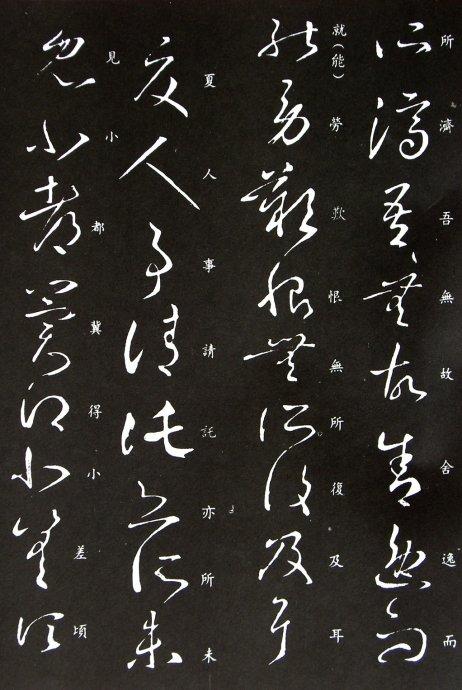 所濟吾無故舍逸而
就（能）勞歎恨無所復及耳
夏人事請託亦所未
見小都冀得小差頃